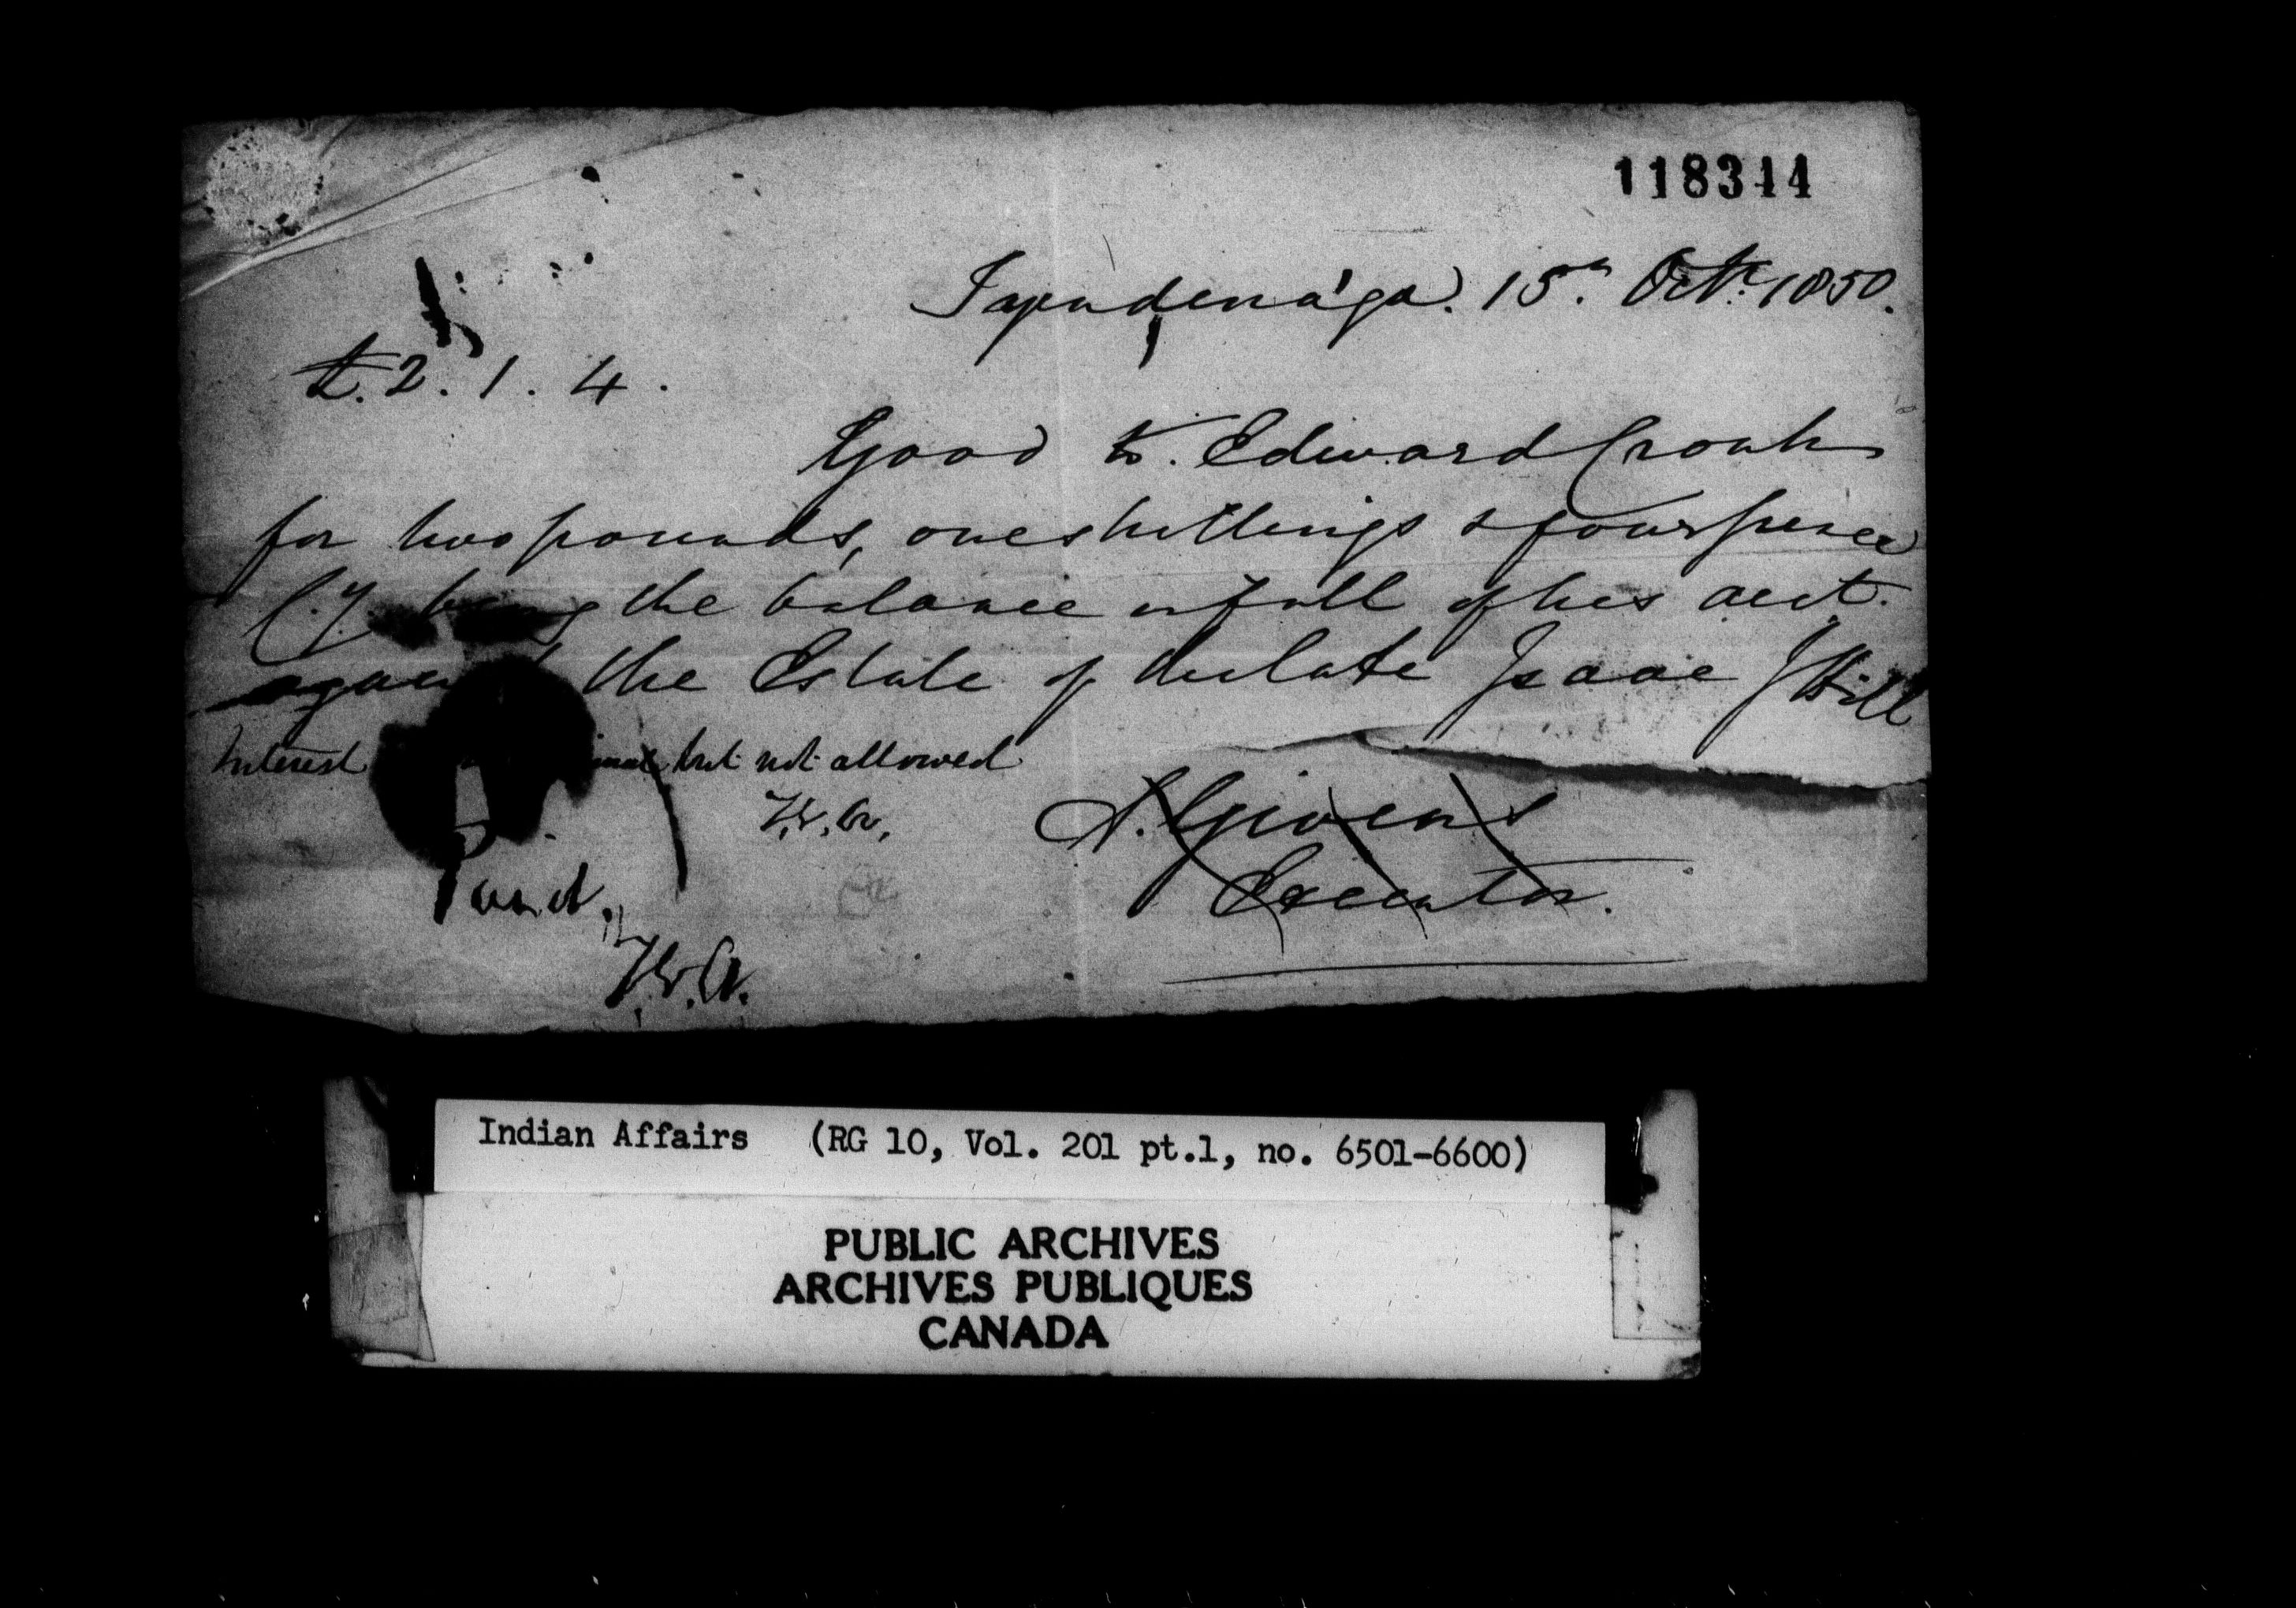 118344
Tayendenaga. 15th Octr. 1850.
£.2.1.4.
Good to. Edward
for two pounds, one shillings & four pence
Cy. being the balance in full of his acct.
against the Estate of the late Isaac J Hill
Interest but not allowed
A. Givens
Executor.
Paid.
Indian Affairs (RG 10, Vol. 201 pt.1, no. 6501-6600)
PUBLIC ARCHIVES
ARCHIVES PUBLIQUES
CANADA